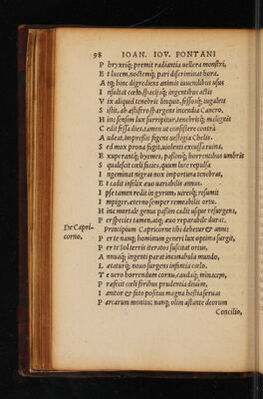 98 IOAN. IOV. PONTANI
P hryxeiq; premit radiantia vellera monstri,
E t lucem, noctemq; pari discriminat hora.
A tq; hinc digrediens animis iuuenilibus usus
I nsultat cœlo, spaciisq; ingentibus actis
V ix aliquid tenebris linquit, fessosq; iugales
S istit, ab æstifero gaudens incendia Cancro.
H inc sensim lux surripitur, tenebrisq; malignis
C edit fessa dies, tamen ut consistere contra
A udeat, impressis figens uestigia Chelis.
S ed mox prona fugit, uiolenti excussa ruina,
E xuperantq; hyemes, passimq; horrentibus umbris
S qualescit cœli facies, quum luce repulsa
I ngeminat nigras nox importuna tenebras,
E t cadit infelix æuo uariabilis annus.
I pse tamen redit in gyrum, uiresq; resumit
I mpiger, æterno semper remeabilis ortu.
H inc mortale genus passim cadit usque resurgens,
P erspecies tamen, atq; æuo reparabile durat.
De Capri-
corno.
Principium Capricorne tibi debetur & anni;
P er te nanq; hominum generi lux optima surgit,
P er te sol terris iteratos suscitat ortus,
A nnuaq; ingenti parat incunabula mundo,
L ætaturq; nouo surgens infantia cœlo.
T e uero horrendum cornu, caudaq; minacem,
P ræfecit cœli foribus prudentia diuum,
I anitor & fito positus magna hostia seruas
P arcarum monitu: nanq; olim astante deorum
Concilio,